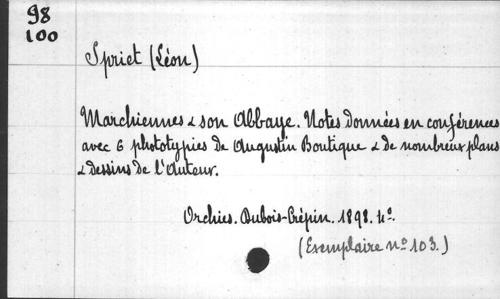 98
100
Spriet (Léon)
Marchiennes & son Abbaye. Notes données en conférences
avec 6 phototypies de Augustin Boutique & de nombreux plans
& dessins de l'Auteur.
Orchies. Dubois-Crépin. 1898. 4º.
(Exemplaire nº 103.)